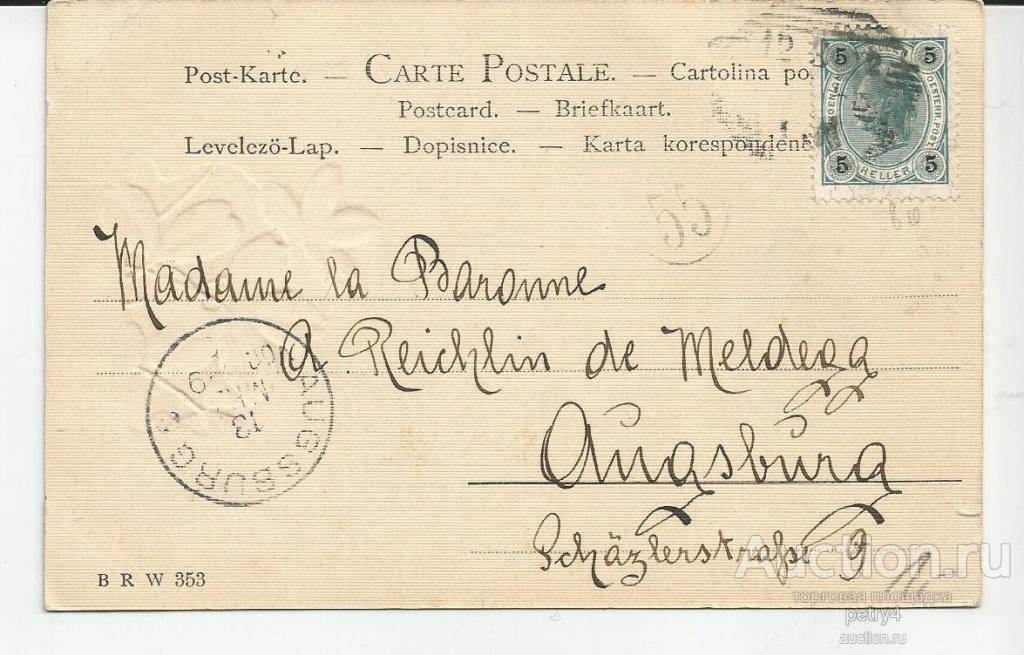 Post-Karte. — CARTE POSTALE. — Cartolina po
Postcard. — Briefkaart.
Levelező-Lap. — Dopisnice. — Karta korespondenc
5 5
OESTERR. POST
5 HELLER 5
55
Madame la Baronne
A. Reichlin de Meldegg
Augsburg
Schäzlerstraße 9
AUGSBURG 2
13
B R W 353
Auction.ru
торговая площадка
petry4
auction.ru